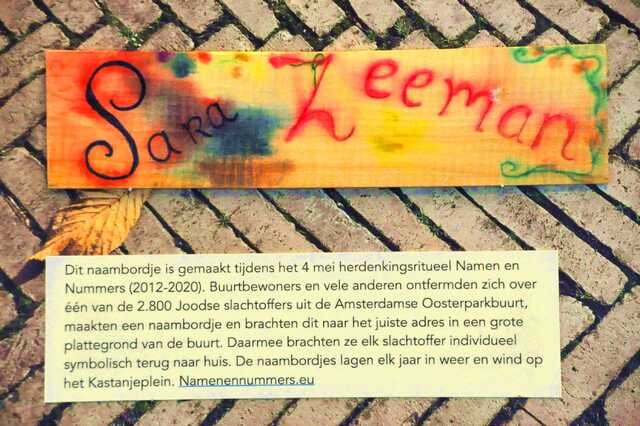 Sara Zeeman
Dit naambordje is gemaakt tijdens het 4 mei herdenkingsritueel Namen en
Nummers (2012-2020). Buurtbewoners en vele anderen ontfermden zich over
één van de 2.800 Joodse slachtoffers uit de Amsterdamse Oosterparkbuurt,
maakten een naambordje en brachten dit naar het juiste adres in een grote
plattegrond van de buurt. Daarmee brachten ze elk slachtoffer individueel
symbolisch terug naar huis. De naambordjes lagen elk jaar in weer en wind op
het Kastanjeplein. Namenennummers.eu